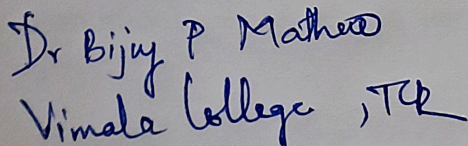 Dr Bijuy P Mathew
Vimala College , TCR